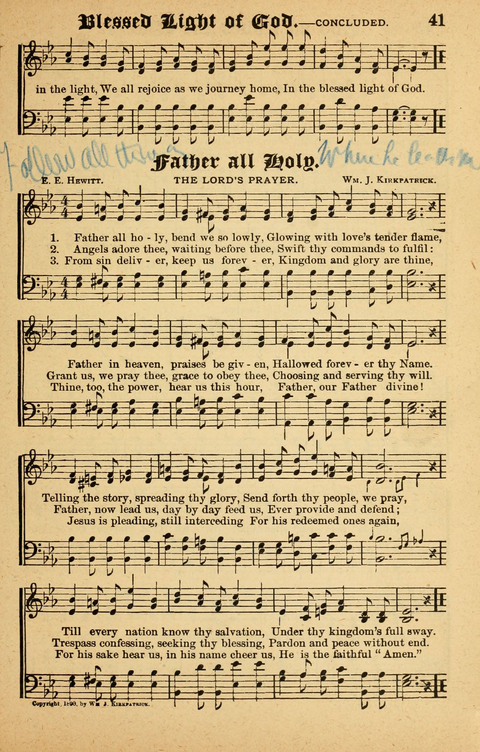 Blessed Light of God.—CONCLUDED. 41
in the light, We all rejoice as we journey home, In the blessed light of God.
Follow all
Father all Holy.
Where he
E. E. HEWITT. THE LORD'S PRAYER. WM. J. KIRKPATRICK.
1. Father all ho - ly, bend we so lowly, Glowing with love's tender flame,
2. Angels adore thee, waiting before thee, Swift thy commands to fulfil:
3. From sin deliv - er, keep us forev - er, Kingdom and glory are thine,
Father in heaven, praises be giv - en, Hallowed forev - er thy Name.
Grant us, we pray thee, grace to obey thee, Choosing and serving thy will.
Thine, too, the power, hear us this hour, Father, our Father divine!
Telling the story, spreading thy glory, Send forth thy people, we pray,
Father, now lead us, day by day feed us, Ever provide and defend;
Jesus is pleading, still interceding For his redeemed ones again,
Till every nation know thy salvation, Under thy kingdom's full sway.
Trespass confessing, seeking thy blessing, Pardon and peace without end.
For his sake hear us, in his name cheer us, He is the faithful "Amen."
Copyright, 1890, by WM J. KIRKPATRICK.